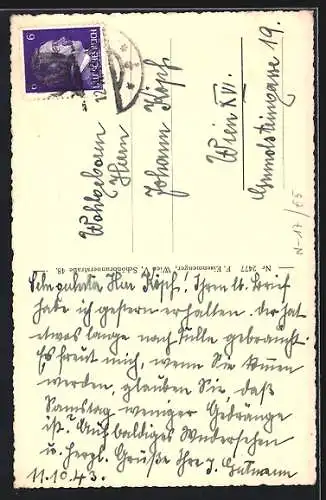 Wohlgeboren
Herrn
Johann Köpf
Wien XVI.
Grundsteingasse 19.
N-17/E5
Nr. 2477 F. Eisenmenger, Wien V, Schönbrunnerstraße 48.
Sehr geehrter Herr Köpf! Ihren lb. Brief
habe ich gestern erhalten. Der hat
etwas lange nach Tulln gebraucht.
Es freut mich, wenn Sie kommen
werden, glauben Sie, daß
Samstag weniger Gedränge
ist? Auf baldiges Wiedersehen
u. herzl. Grüße Ihre J.
11.10.43.